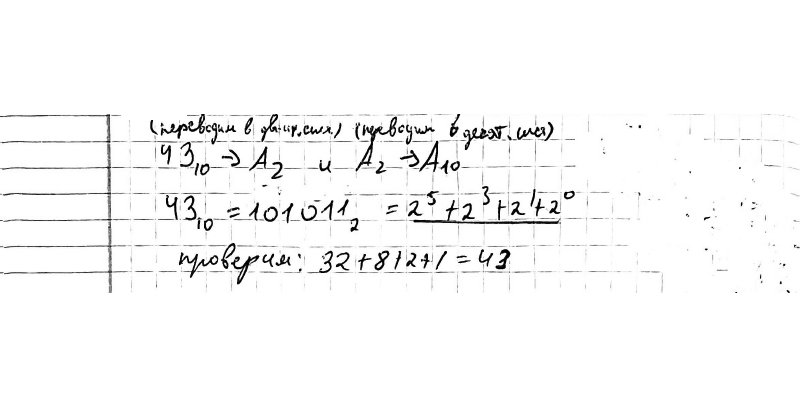 (переводим в двоич. сист) (переводим в десят. сист)
43₁₀ → A₂ и A₂ → A₁₀
43₁₀ = 101011₂ = 2⁵ + 2³ + 2¹ + 2⁰
проверим: 32 + 8 + 2 + 1 = 43